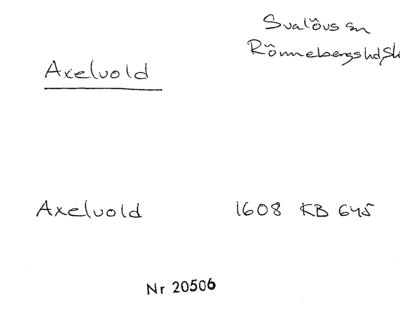 Svalövs sn
Rönnebergs hd, Sk
Axelvold
Axelvold 1608 KB 645
Nr 20506